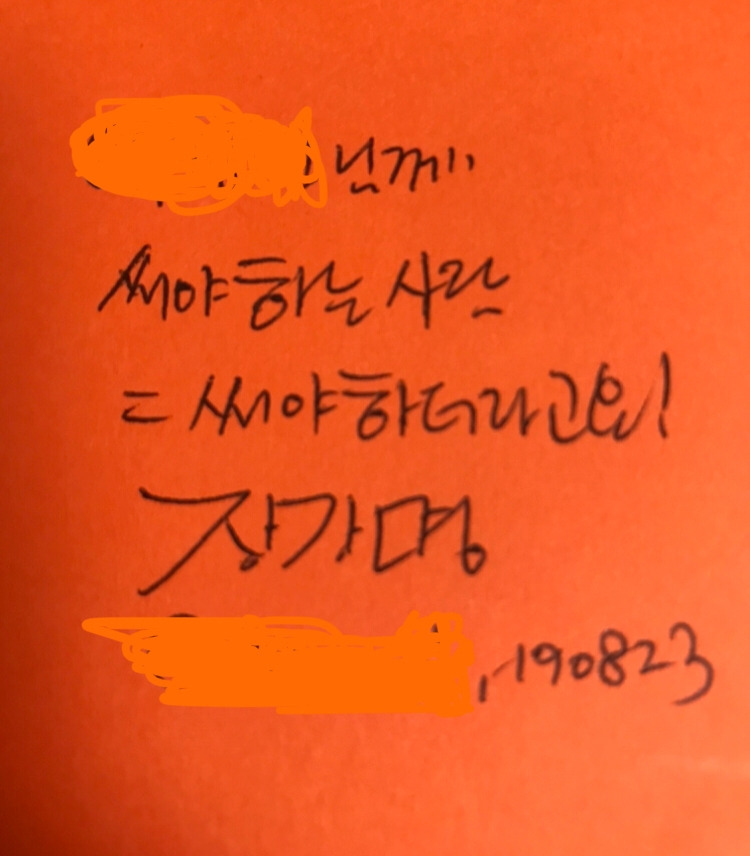 님께
써야 하는 사람
= 써야 하더라고요!
장가명
, 190823